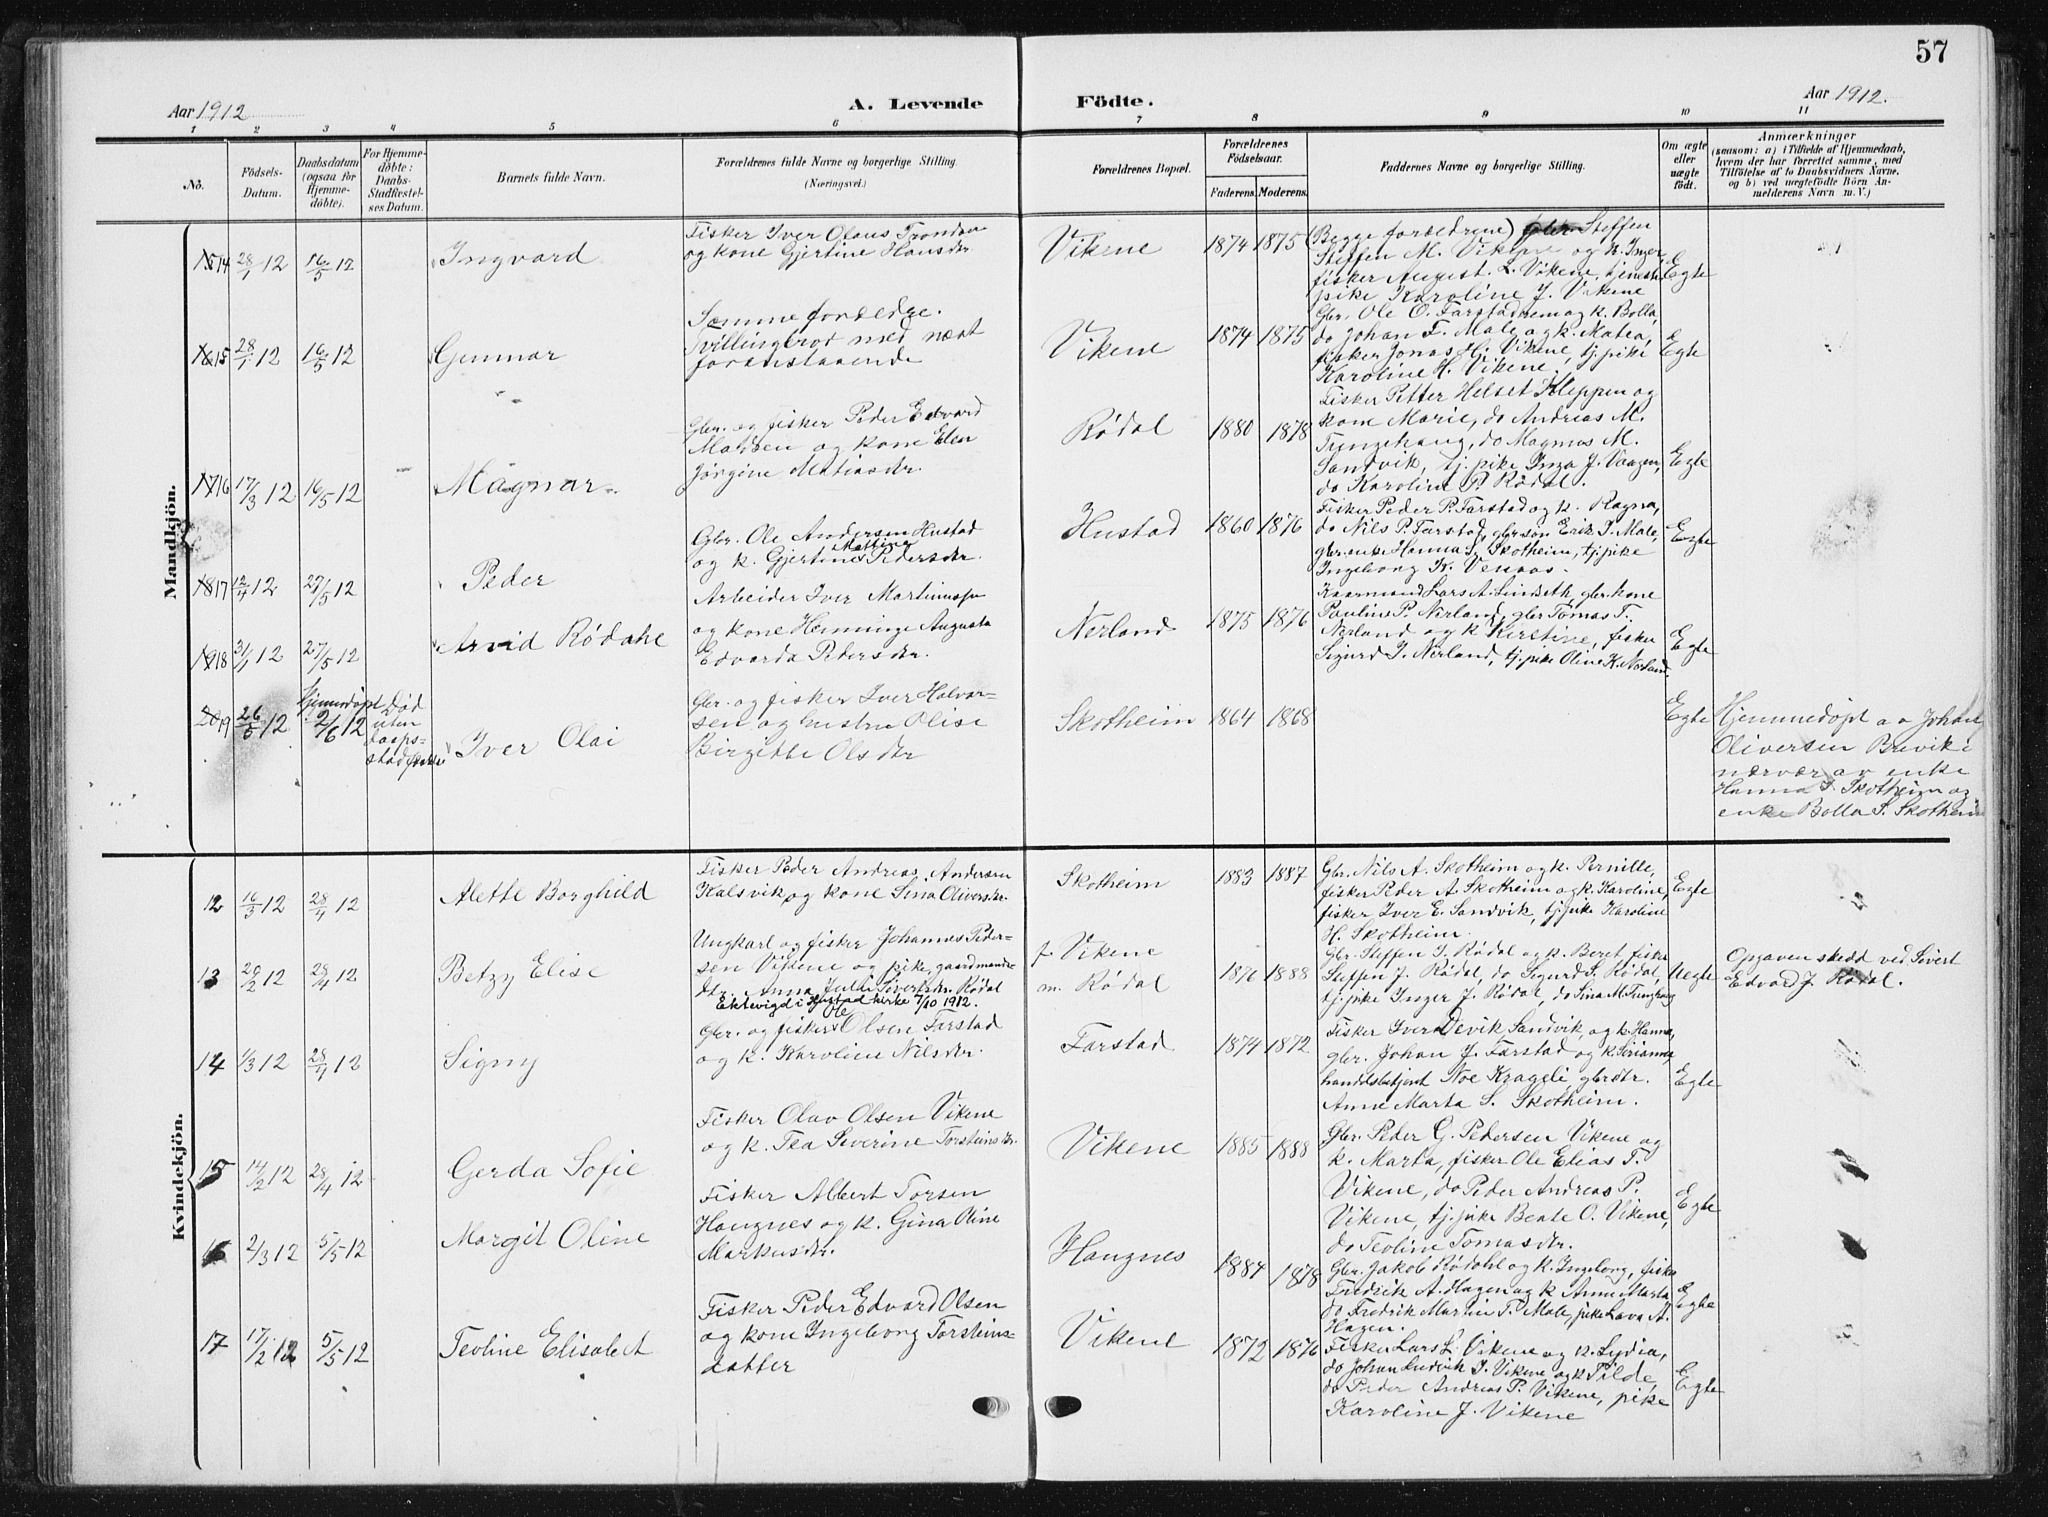 57
Aar 1912
A. Levende
Födte.
Aar 1912.
1 2 3 4 5 6 7 8 9 10 11
No.
Födsels-
Datum.
Daabsdatum
(ogsaa for
Hjemme-
döbte).
For Hjemme-
döbte:
Daabs-
Stadfæstel-
ses Datum.
Barnets fulde Navn.
Forældrenes fulde Navne og borgerlige Stilling.
(Næringsvei.)
Forældrenes Bopæl.
Forældrenes
Födselsaar.
Faderens. Moderens.
Faddernes Navne og borgerlige Stilling.
Om ægte
eller
uægte
födt.
Anmærkninger
(saasom: a) i Tilfælde af Hjemmedaab,
hvem der har forrettet samme, med
Tilföielse af to Daabsvidners Navne,
og b) ved uægtefödte Börn An-
melderens Navn m. V.)
Mandkjön.
14 28/1 12 16/5 12 Ingvard
Fisker Iver Olaus
og kone Gjertine Hansdtr
Vikene 1874 1875
(Begge forældrene) Steffen
Steffen M. Vikene og k. Inger,
fisker August L. Vikene, tjeneste
pike Karoline J. Vikene
Egte
15 28/1 12 16/5 12 Gunnar
Samme forældre.
Tvillingbror med næst
foranstaaende
Vikene 1874 1875
Gbr. Ole O. Farstad og k. Bolla,
do Johan F. Male og k. Matea,
fisker Jonas H. Vikene, tj. pike
Karoline H. Vikene.
Egte
16 17/3 12 16/5 12 Magnar
Gbr. og fisker Peder Edvard
Madsen og kone Elen
Jørgine Matiasdtr.
Rødal 1880 1878
Fisker Petter Helset Kleppen og
kone Marie, do Andreas M.
Tungehaug, do Magnus M.
Sandvik, tj. pike Inga J. Vaagen,
do Karoline P. Rødal.
Egte
17 12/4 12 27/5 12 Peder
Gbr. Ole Andersen Hustad
og k. Gjertine Mattine Pedersdtr.
Hustad 1860 1876
Fisker Peder P. Farstad og k. Ragna,
do Nils P. Farstad, gbr.søn Erik I. Male,
gbr. enke Hanna I. Skotheim, tj. pike
Ingeborg K. Venaas.
Egte
18 31/1 12 27/5 12 Arvid Rødahl
Arbeider Iver Martinus
og kone Henninge Augusta
Edvarda Pedersdtr.
Nerland 1875 1876
Kaarmand Lars A. Lindseth, gbr. kone
Pauline P. Nerland, gbr Tomas T.
Nerland og k Kirstine, fisker
Sigurd I. Nerland, tj. pike Oline K. Nerland.
Egte
19 26/5 12 Hjemmedøpt 2/6 12
Død
uten
daaps-
stadfæstelse
Iver Olai
Gbr. og fisker Iver Halvor-
sen og hustru Olise
Birgitte Olsdtr
Skotheim 1864 1868
Egte
Hjemmedøpt av Johan
Oliversen Brevik i
nærvær av enke
Hanna I. Skotheim og
enke Bolla S. Skotheim
Kvindekjön.
12 16/3 12 28/4 12 Alette Borghild
Fisker Peder Andreas Andersen
Kalsvik og kone Sina Oliversdtr.
Skotheim 1883 1887
Gbr. Nils A. Skotheim og k. Pernille,
fisker Peder A. Skotheim og k. Karoline,
fisker Iver E. Sandvik, tj. pike Karoline
H. Skotheim.
Egte
13 29/2 12 28/4 12 Betzy Elise
Ungkarl og fisker Johannes Peder-
sen Vikene og pike, gaardmands-
dtr. Anna Julie Sivertsdtr Rødal
Ektevigd i Hustad kirke 7/10 1912.
f. Vikene
m. Rødal
1876 1888
Gbr. Steffen I. Rødal og k. Beret, fisker
Steffen J. Rødal, do Sigurd S. Rødal,
tj. pike Inger J. Rødal, do Sina M. Tunghaug
Uegte
Opgaven skedd ved Sivert
Edvard J. Rødal.
14 1/3 12 28/4 12 Signy
Gbr. og fisker Olsen Farstad
og k. Karoline Nilsdtr.
Farstad 1874 1872
Fisker Iver Devik Sandvik, og k. Hanna,
gbr. Johan J. Farstad og k. Serianna,
handelsbetjent Noe Krageli, gbrdtr.
Anne Marta S. Skotheim.
Egte
15 14/2 12 28/4 12 Gerda Sofie
Fisker Olav Olsen Vikene
og k. Tea Severine Torsteinsdtr.
Vikene 1885 1888
Gbr. Peder G. Pedersen Vikene og
k. Marta, fisker Ole Elias T.
Vikene, do Peder Andreas P.
Vikene, tj. pike Beate O. Vikene,
do Teoline Tomasdtr.
Egte
16 2/3 12 5/5 12 Margit Oline
Fisker Albert Torsen
Haugnes og k. Gina Oline
Markusdtr.
Haugnes 1884 1878
Gbr. Jakob Rødahl og k. Ingeborg, fisker
Fredrik A. Hagen og k Anne Marta
do Fredrik Martin T. Male, pike Lava A.
Hagen.
Egte
17 17/2 12 5/5 12 Teoline Elisabet
Fisker Peder Edvard Olsen
og kone Ingeborg Torsteins-
datter
Vikene 1872 1876
Fisker Lars L. Vikene og k. Lydia,
do Johan Ludvik I. Vikene og k Tilde,
do Peder Andreas P. Vikene, pike
Karoline J. Vikene
Egte